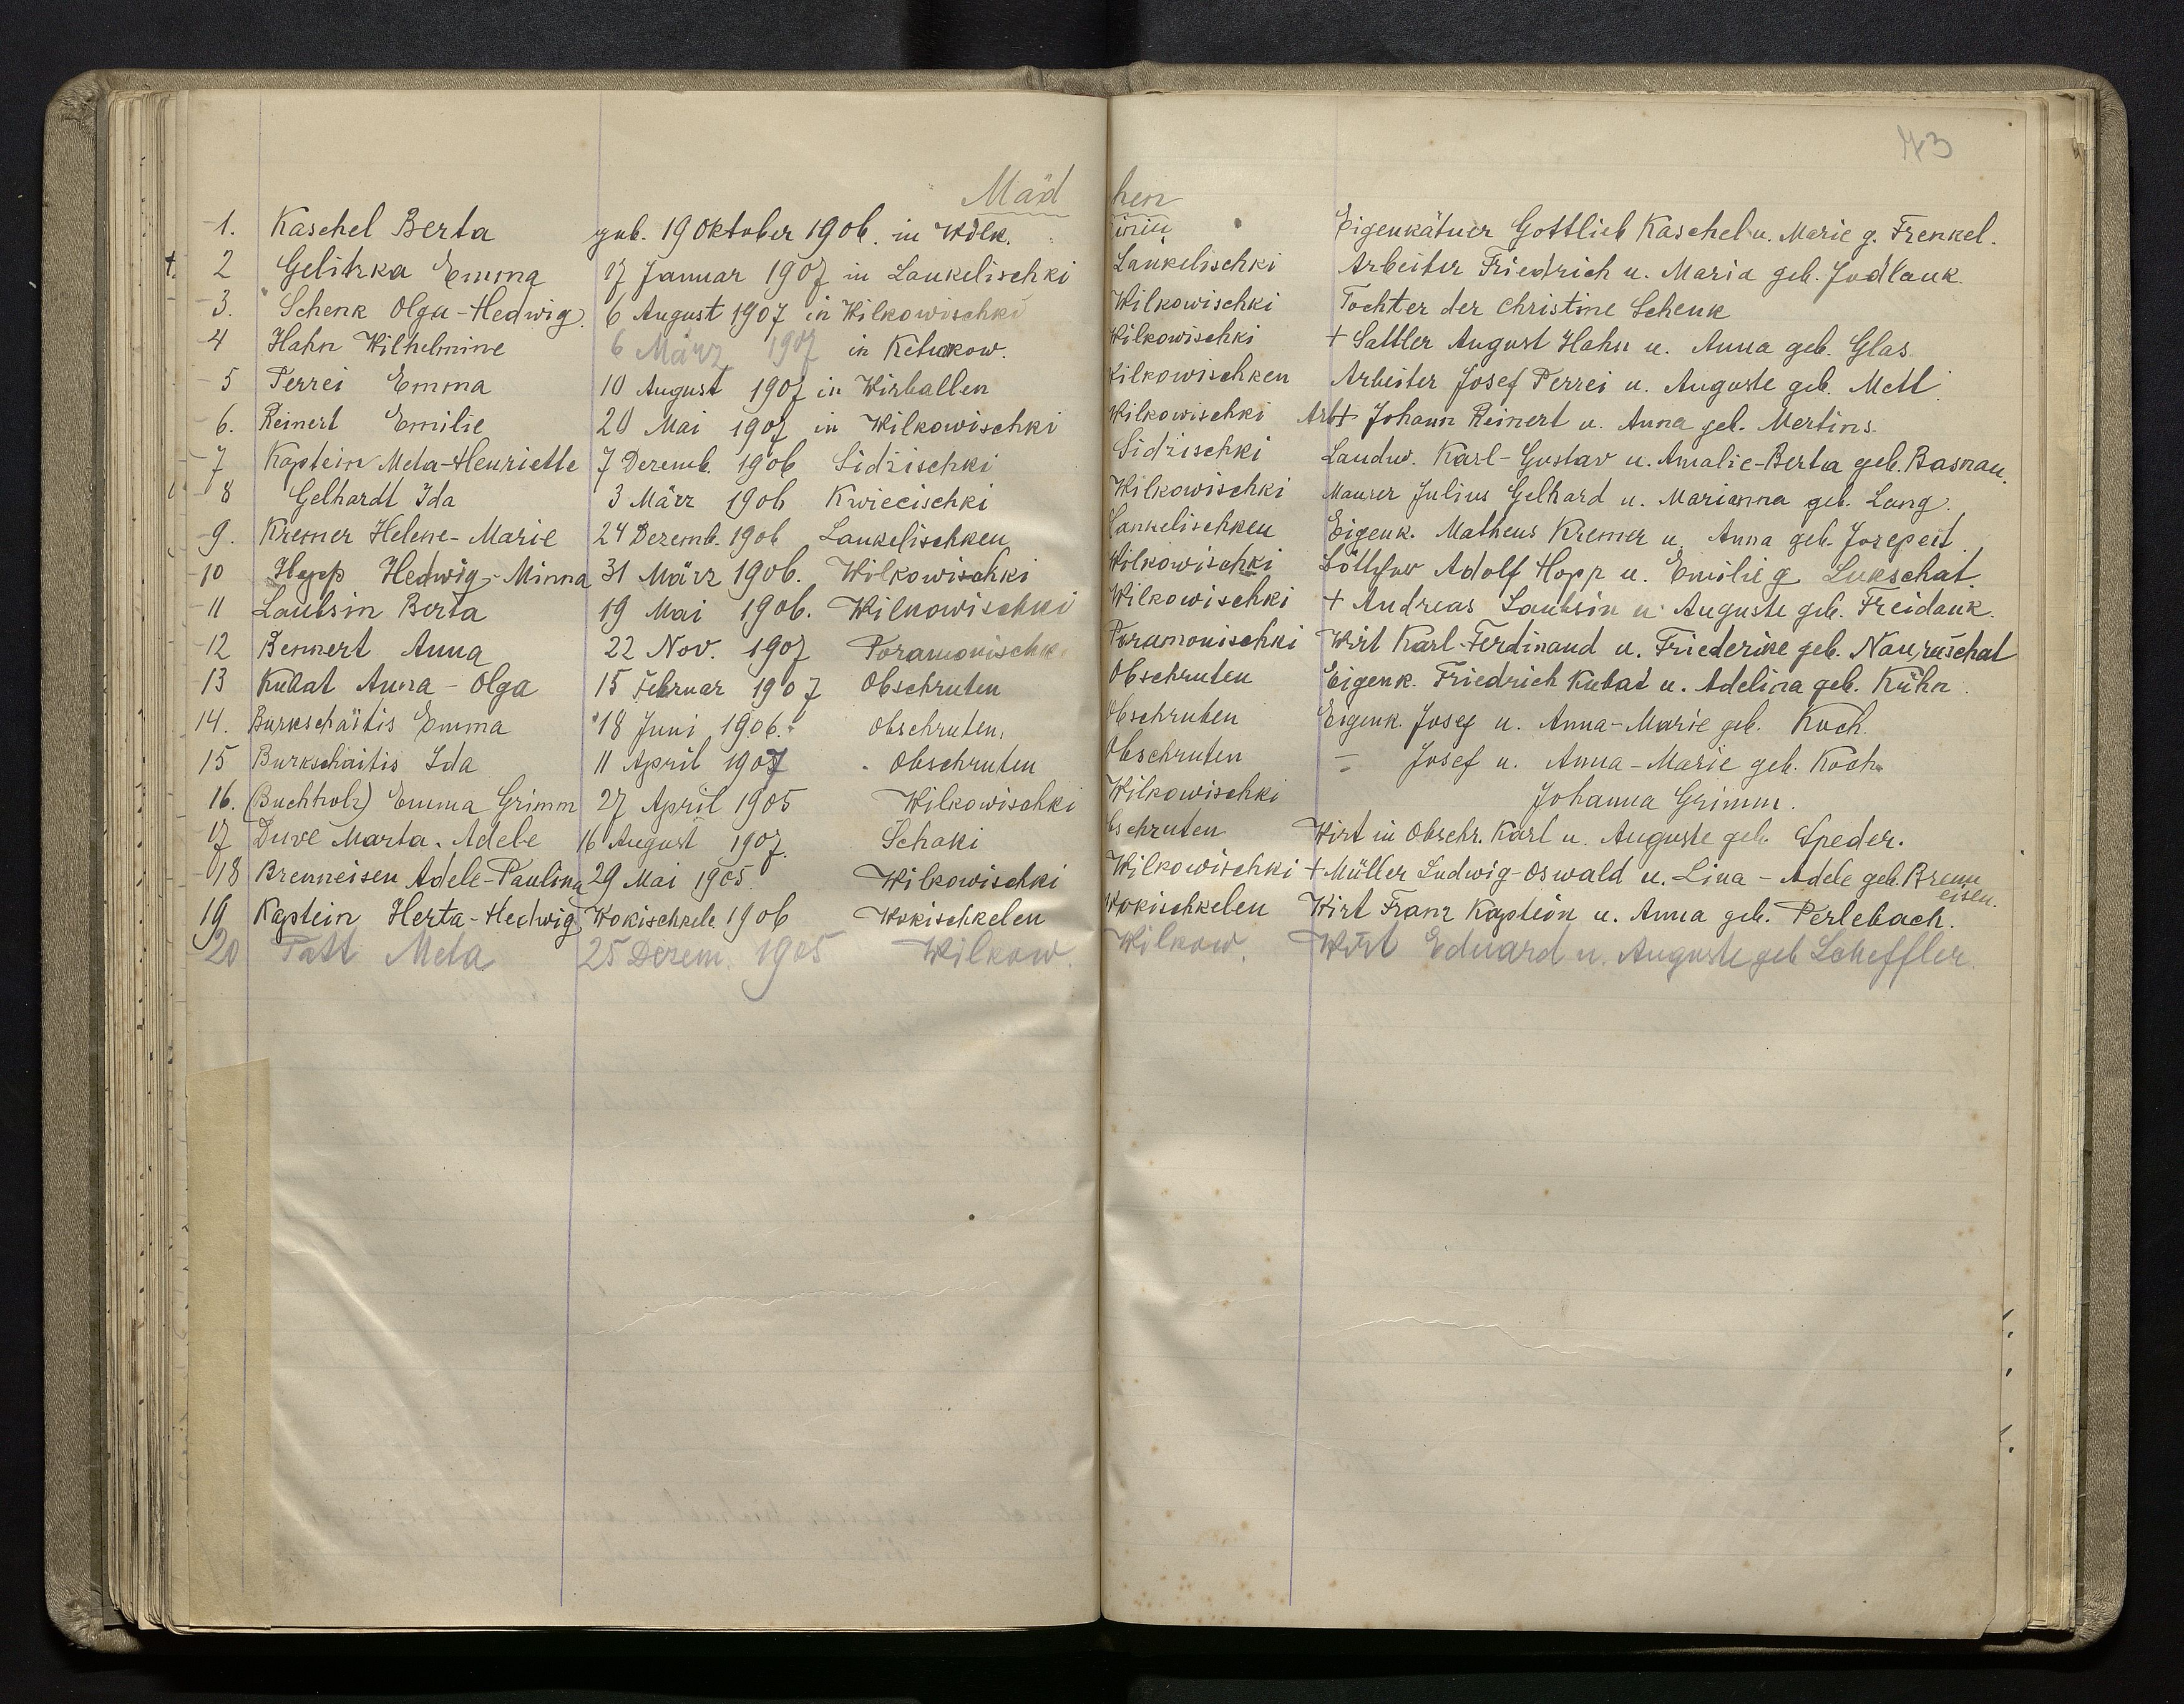 43
Mädchen
1. Kaschel Berta geb. 19 Oktober 1906. in Wilk. Eigenkätner Gottlieb Kaschel u. Marie g. Frenkel.
t. 2 Gelitzka Emma 17 Januar 1907 in Laukelischki Laukelischki Arbeiter Friedrich u. Maria geb. Jodlauk.
3. Schenk Olga-Hedwig. 6 August 1907 in Wilkowischki Wilkowischki Tochter der Christine Schenk
4 Hahn Wilhelmine 6 März 1907 in Wilkowischki + Sattler August Hahn u. Anna geb. Glas
5 Perrei Emma 10 August 1907 in Wirballen Wilkowischken Arbeiter Josef Perrei u. Auguste geb. Mett
6. Reinert Emilie 20 Mai 1907 in Wilkowischki Wilkowischki Arb+ Johann Reinert u. Anna geb. Mertins.
7 Kaptein Meta-Henriette 7 Dezemb. 1906 Sidzischki Sidzischki Landw. Karl-Gustav u. Amalie-Berta geb. Basnau.
8 Gelhardt Ida 3 März 1906 Kwiecischki Wilkowischki Maurer Julius Gelhard u. Marianna geb. Lang.
9. Kremer Helene-Marie 24 Dezemb. 1906 Laukelischken Laukelischken Eigenk. Matheus Kremer u. Anna geb. Jozepeit.
10 Hopp Hedwig-Minna 31 März 1906. Wilkowischki Wilkowischki Adolf Hopp u. Emilie g. Lukschat.
11 Laubsin Berta 19 Mai 1906. Wilkowischki Wilkowischki + Andreas Laubsin u. Auguste geb. Freidank.
12 Bennert Anna 22 Nov. 1907 Poramonischki Poramonischki Wirt Karl-Ferdinand u. Friederike geb. Naujuschat
13 Kubat Anna-Olga 15 Februar 1907 Obschruten Obschruten Eigenk. Friedrich Kubat u. Adelina geb. Kühn.
14. Burkschaitis Emma 18 Juni 1906. Obschruten. Obschruten Eigenk. Josef u. Anna-Marie geb. Koch.
15 Burkschaitis Ida 11 April 1907 Obschruten Obschruten = Josef u. Anna-Marie geb. Koch
16. (Buchholz) Emma Grimm 27 April 1905 Wilkowischki Wilkowischki Johanna Grimm.
17 Duwe Marta-Adele 16 August 1907. Schaki Obschruten Wirt in Obschr. Karl u. Auguste geb. Speder.
18 Brenneisen Adele-Paulina 29 Mai 1905. Wilkowischki Wilkowischki + Müller Ludwig-Oswald u. Lina-Adele geb. Brenneisen.
19 Kaptein Herta-Hedwig Wokischkele 1906 Wokischkelen Wokischkelen Wirt Franz Kaptein u. Anna geb. Perlebach.
20 Patt Meta 25 Dezem. 1905 Wilkow. Wilkow. Wirt Eduard u. Auguste geb Scheffler.